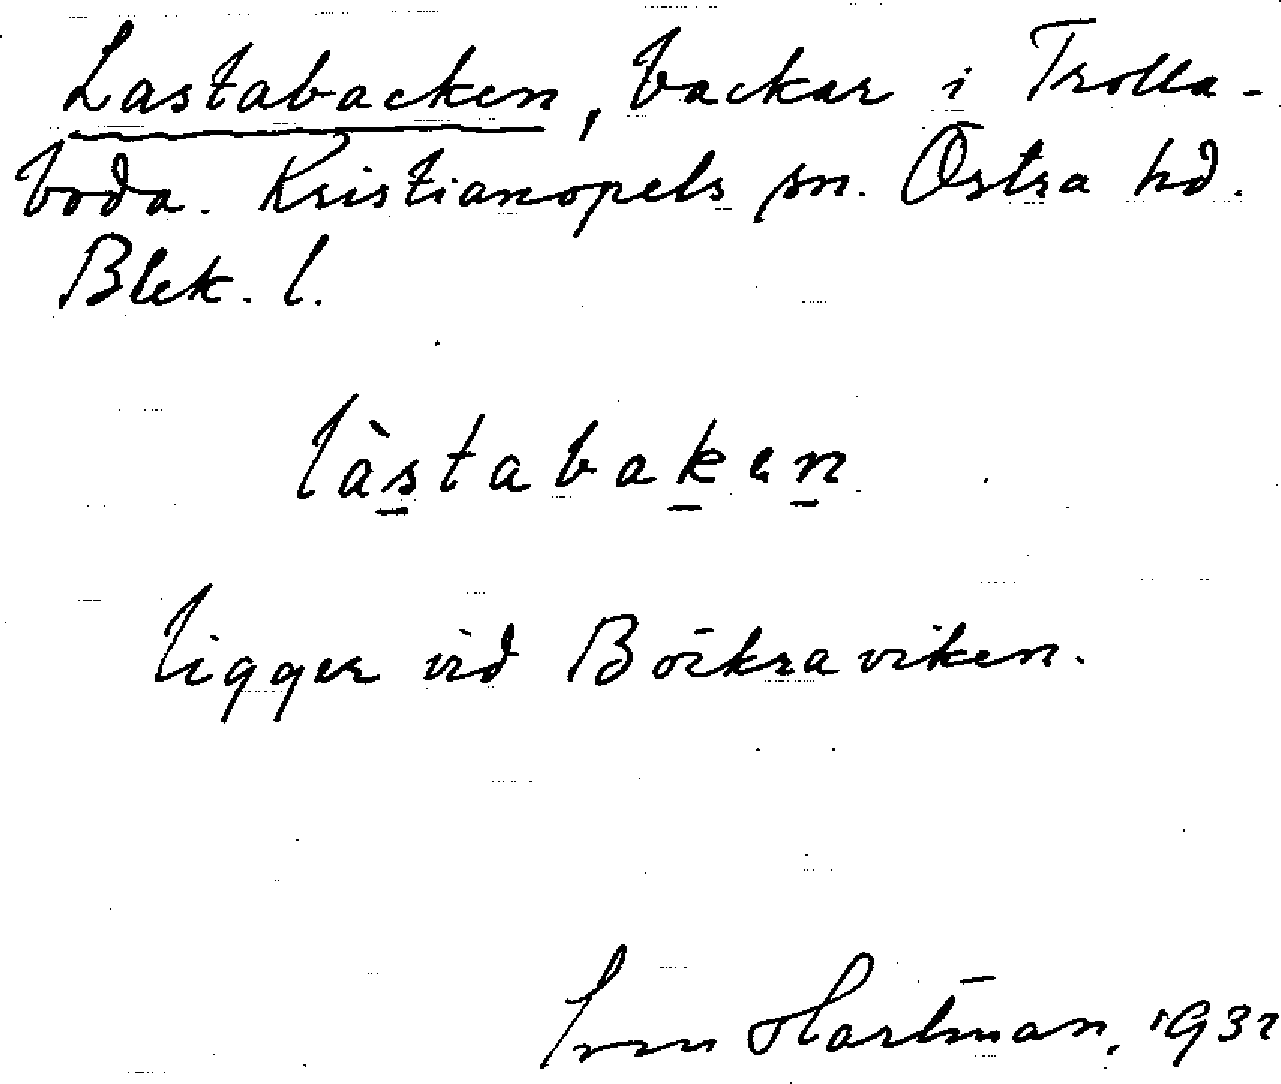 Lastabacken, backar i Trolla-
boda. Kristianopels sn. Östra hd.
Blek. l.
làstabaken
ligger vid Bökraviken.
Sven Hartman, 1932